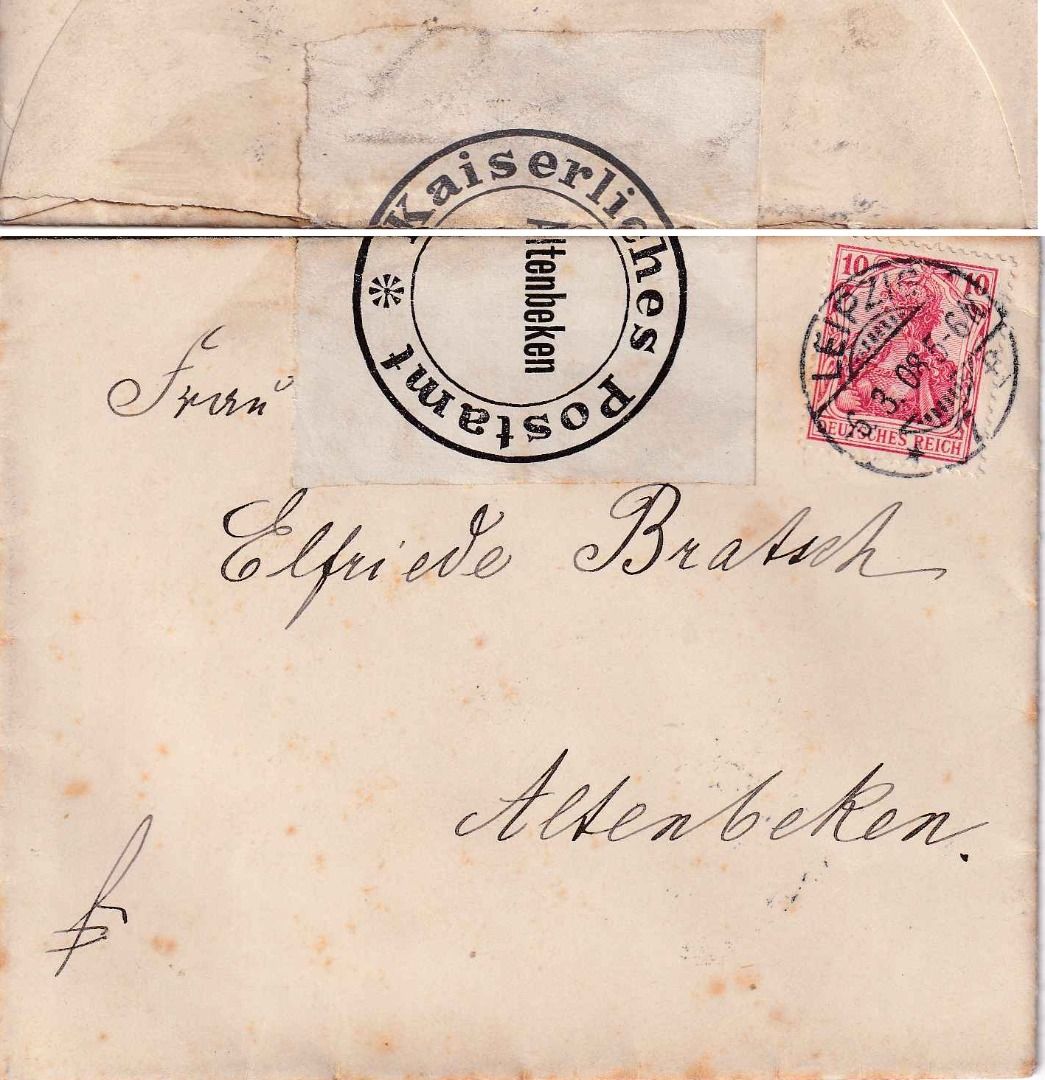 Kaiserliches Postamt
Altenbeken
10 10
DEUTSCHES REICH
LEIPZIG
5 3 08 5-6N
Frau
Elfriede Bratsch
Altenbeken.